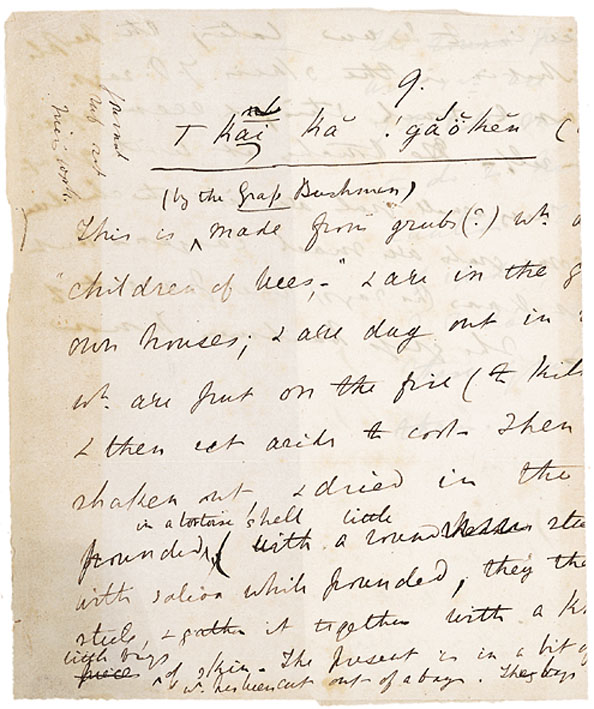 9.
T kai kă !găŏkĕn (
(by the Grass Bushmen)
This is ^ made from grubs (?) wh. a
"children of bees,–" & are in the g
own houses; & are dug out in
wh. are put on the fire (to kill
& then set aside to cool. Then
shaken out, & dried in the
in a tortoise shell little
pounded, ^ ( with a round stee
with saliva while pounded, they the
stick, & gather it together with a kn
little bags
pieces ^ of skin. The present is in a bit of
wh. has been cut out of a bag. The bags